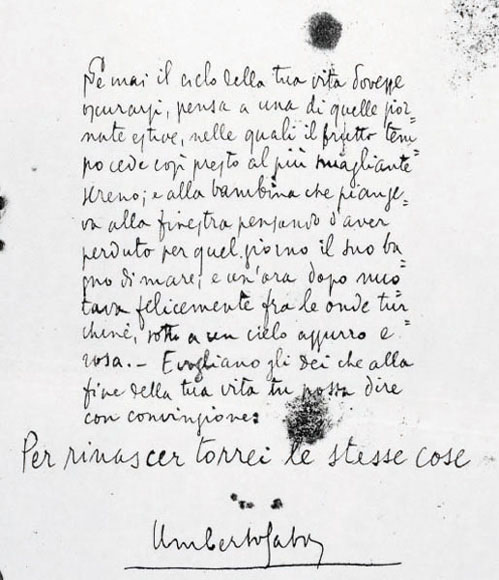 Se mai il cielo della tua vita dovesse
oscurarsi, pensa a una di quelle gior=
nate estive, nelle quali il brutto tem=
po cede così presto al più smagliante
sereno; e alla bambina che piange=
va alla finestra pensando d'aver
perduto per quel giorno il suo ba=
gno di mare; e un'ora dopo nuo=
tava felicemente fra le onde tur=
chine, sotto a un cielo azzurro e
rosa. - E vogliano gli dei che alla
fine della tua vita tu possa dire
con convinzione:
Per rinascer torrei le stesse cose
Umberto Saba